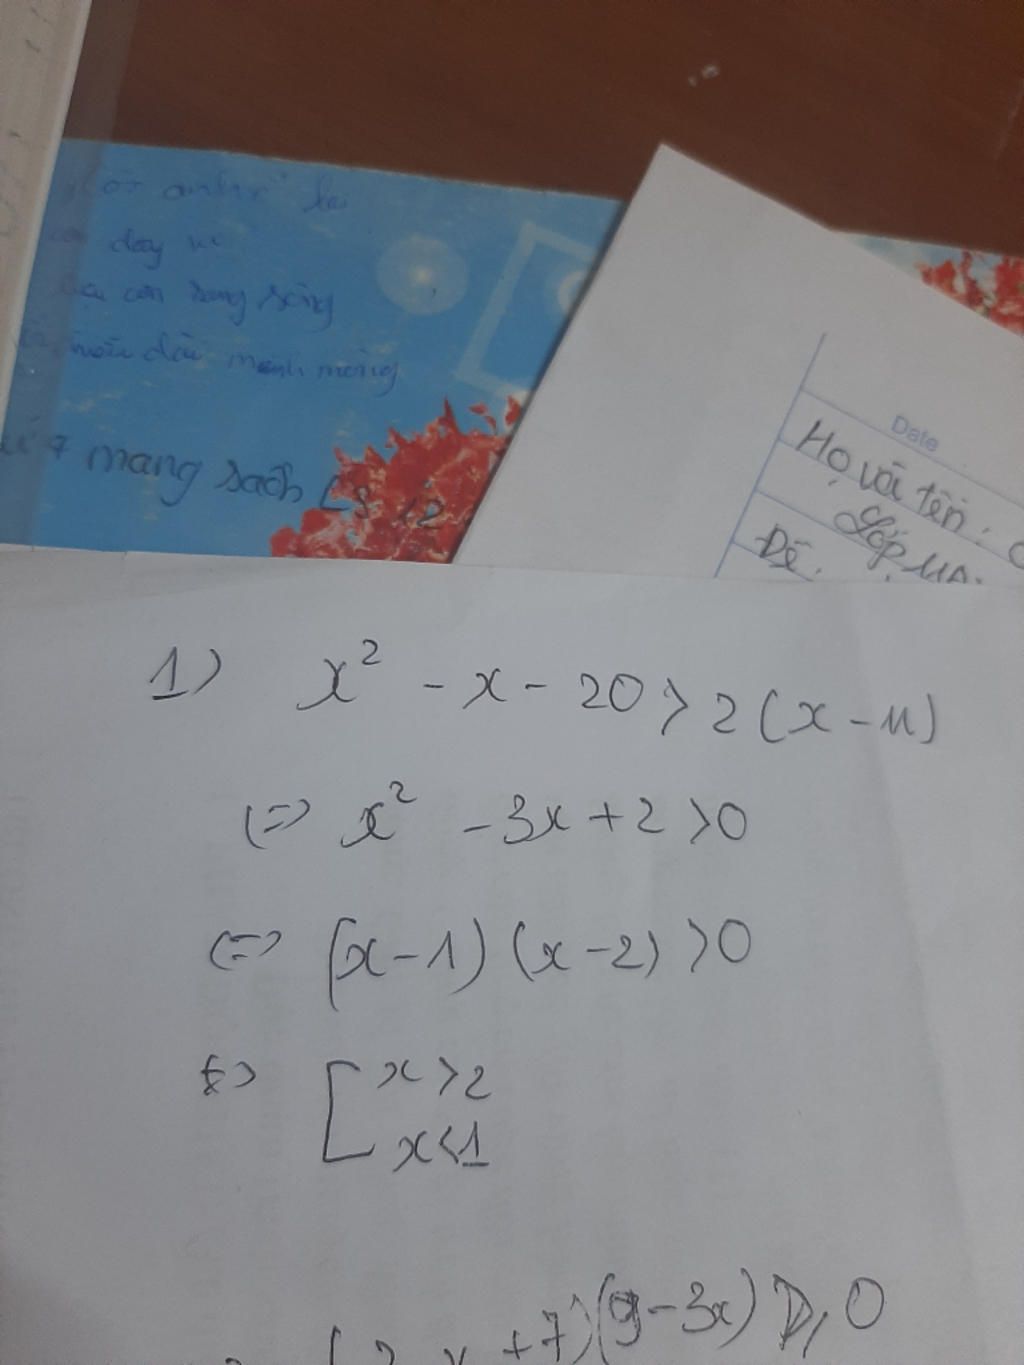 day
con sang sông
mênh mông
mang sách
12
Date
Họ và tên:
Lớp 11A
Đề:
1) x² - x - 20 > 2(x - 11)
(=) x² - 3x + 2 > 0
(=) (x - 1)(x - 2) > 0
(=) [ x > 2
x < 1
x + 7)(9 - 3x) ≥ 0